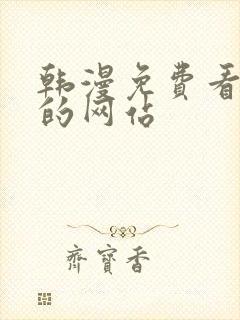 韩漫免费看
的网站
齊寶香